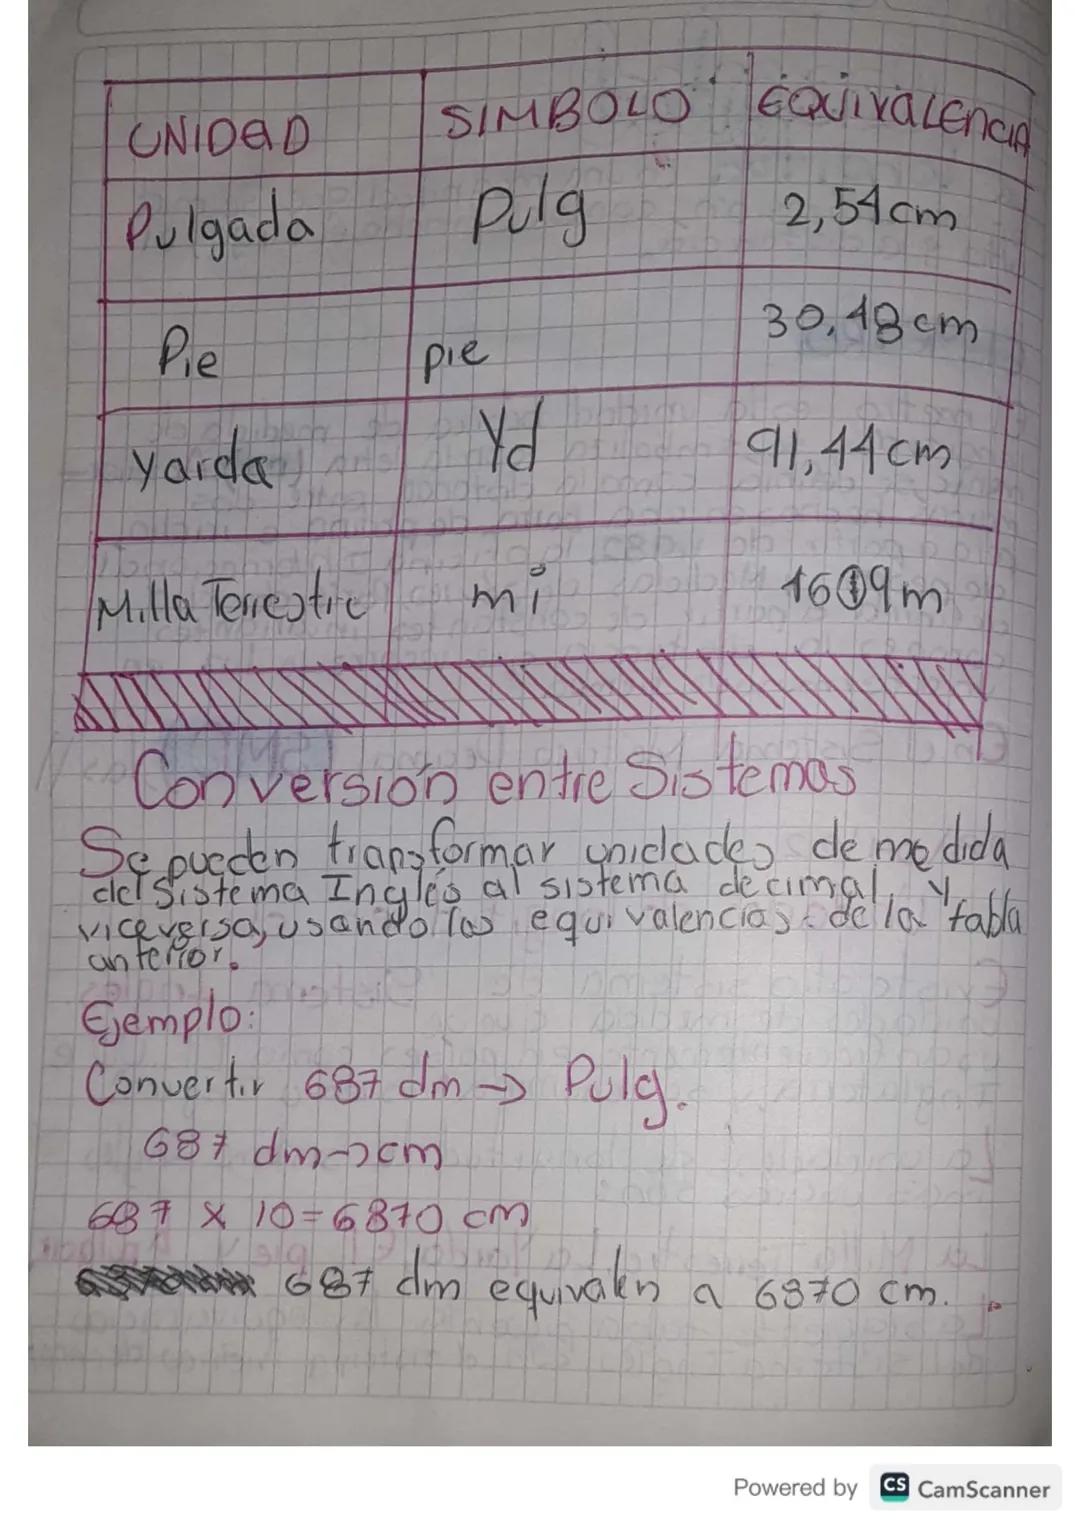 UNIDAD SIMBOLO EQUIVALENCIA
Pulgada Pulg 2,54cm
Pie pie 30,48cm
yarda Yd 91,44cm
Milla Terrestre mi 1609m
Conversión entre Sistemas
Se pueden transformar unidades de medida
del sistema Inglés al sistema decimal, y
viceversa, usando las equivalencias de la tabla
anterior.
Ejemplo:
Convertir 687 dm → Pulg.
687 dm→cm
687 x 10=6870 cm
687 dm equivalen a 6870 cm.
Powered by CS CamScanner